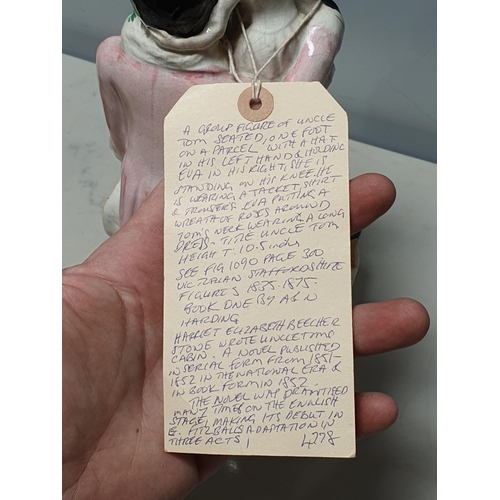 A GROUP FIGURE OF UNCLE
TOM SEATED, ONE FOOT
ON A PARCEL WITH A HAT
IN HIS LEFT HAND & HOLDING
EVA IN HIS RIGHT, SHE IS
STANDING ON HIS KNEE. HE
IS WEARING A JACKET SHIRT
& TROUSERS. EVA PUTTING A
WREATH OF ROSES AROUND
TOM'S NECK WEARING A LONG
DRESS - TITLE UNCLE TOM
HEIGHT: 10.5 inches
SEE FIG 1090 PAGE 300
VICTORIAN STAFFORDSHIRE
FIGURES 1835-1875.
BOOK ONE BY A & N
HARDING
HARRIET ELIZABETH BEECHER
STONE WROTE UNCLE TOMS
CABIN. A NOVEL PUBLISHED
IN SERIAL FORM FROM 1851-
1852 IN THE NATIONAL ERA &
IN BOOK FORM IN 1852.
THE NOVEL WAS DRAMATISED
MANY TIMES ON THE ENGLISH
STAGE, MAKING ITS DEBUT IN
E. FITZBALLS ADAPTATION IN
THREE ACTS 4778